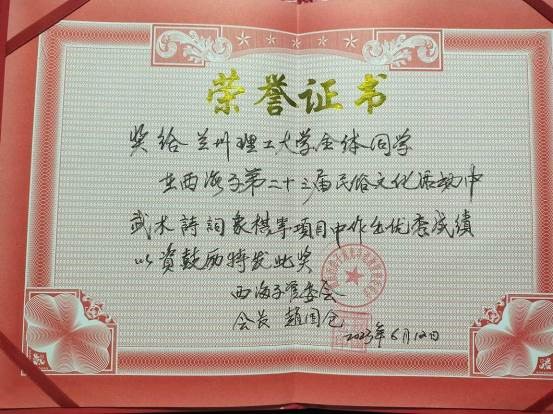 荣誉证书
奖给兰州理工大学全体同学
在西海子第二十三届民俗文化活动中
武术詩詞象棋等项目中作出优秀成績
以资鼓励特发此奖
西海子管委会
会长 赵国仓
2023年6月12日